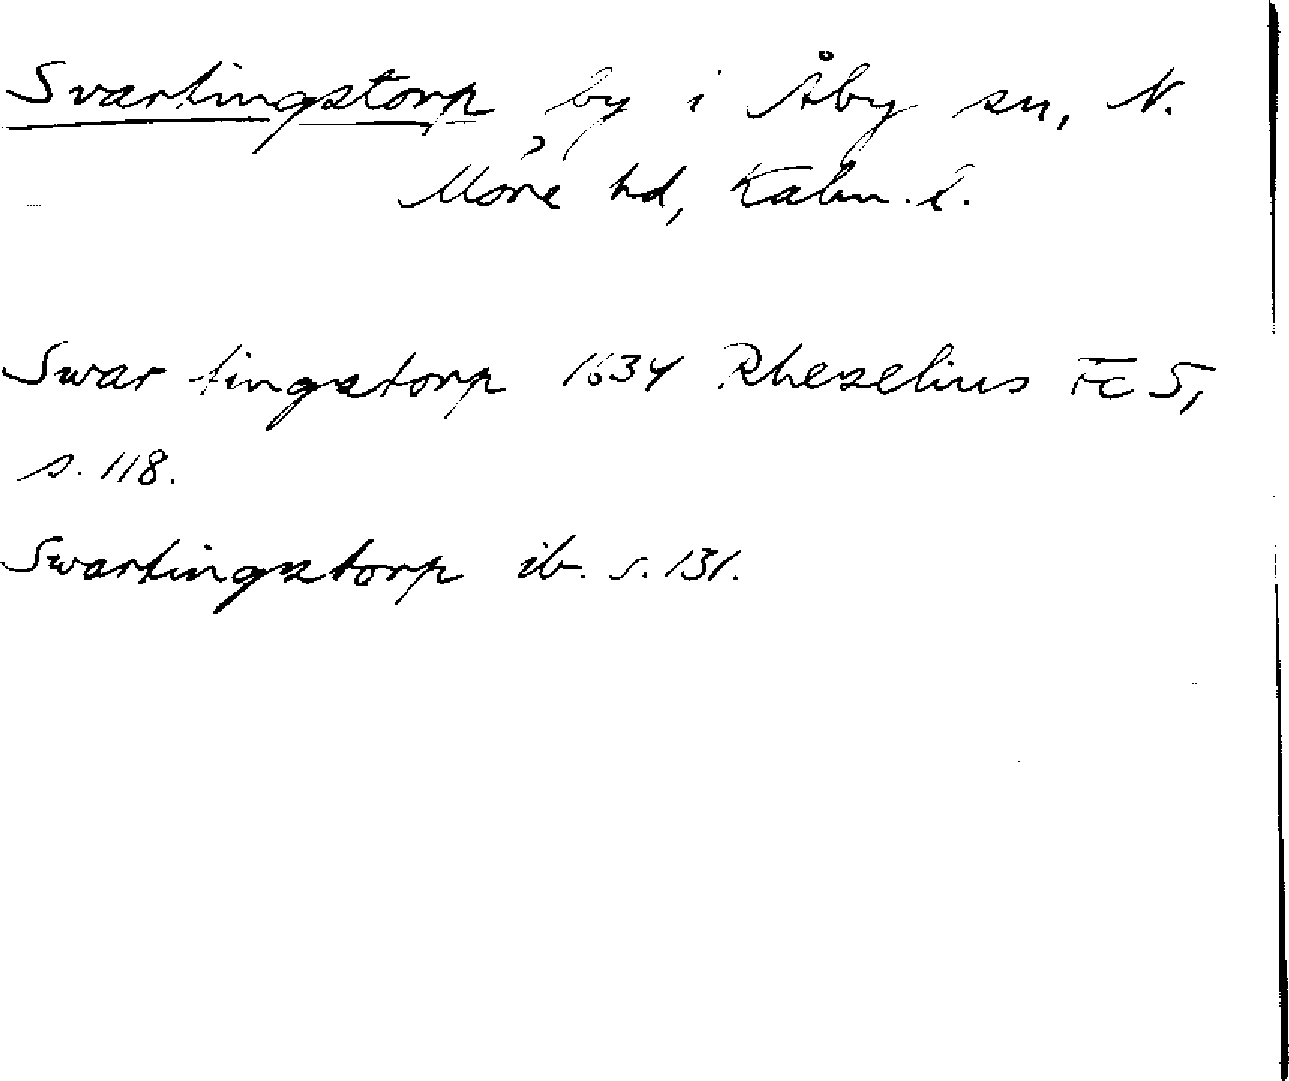 Svartingstorp by i Åby sn, N.
Möre hd, Kalm. l.
Swar tingstorp 1634 Rhezelius Fc 5,
s. 118.
Swartingstorp ib. s. 131.